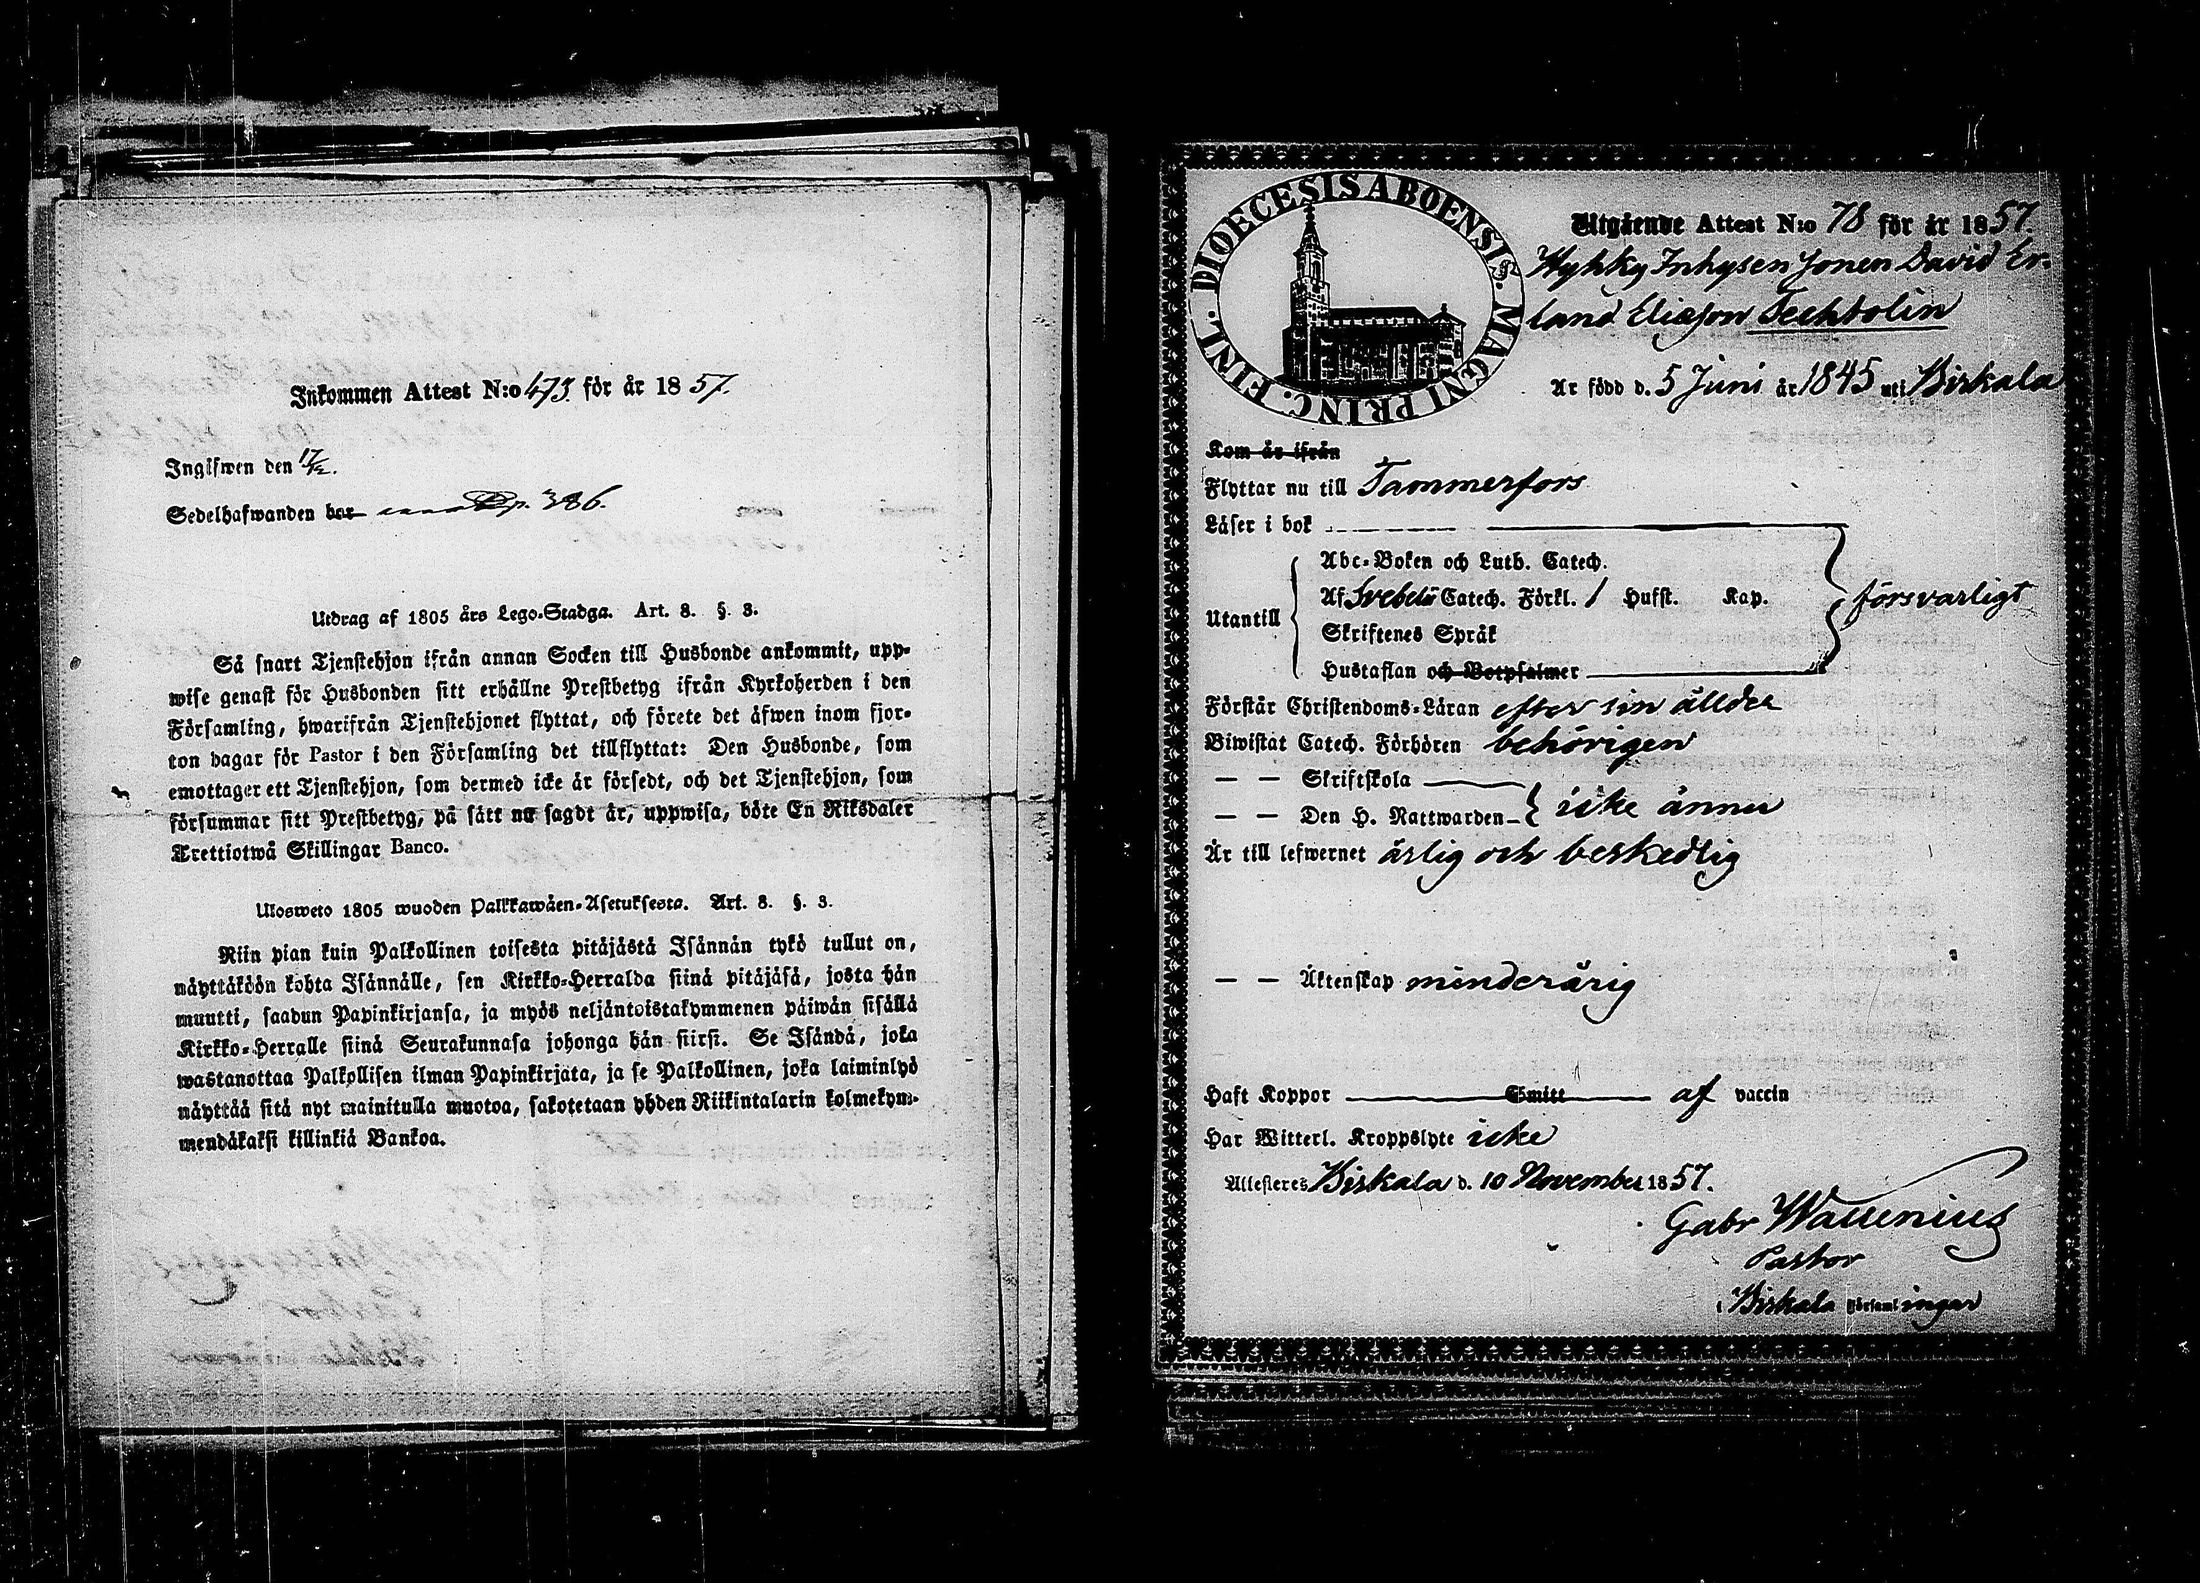 Inkommen Attest N:o 473. för år 1857.
Ingifwen den 17/12.
Sedelhafwanden bor p. 386.
Utdrag af 1805 års Lego-Stadga. Art. 8. §. 3.
Så snart Tjenstehjon ifrån annan Socken till Husbonde ankommit, upp-
wise genast för Husbonden sitt erhållne Prestbetyg ifrån Kyrkoherden i den
Församling, hwarifrån Tjenstehjonet flyttat, och förete det äfwen inom fjor-
ton dagar för Pastor i den Församling det tillflyttat: Den Husbonde, som
emottager ett Tjenstehjon, som dermed icke är försedt, och det Tjenstehjon, som
försummar sitt Prestbetyg, på sätt nu sagdt är, uppwisa, böte En Riksdaler
Trettiotwå Skillingar Banco.
Ulosweto 1805 wuoden Palkkawäen-Asetuksesta. Art. 8. §. 3.
Niin pian kuin Palkollinen toisesta pitäjästä Isännän tykö tullut on,
näyttäköön kohta Isännälle, sen Kirkko-Herralda siinä pitäjäsä, josta hän
muutti, saadun Papinkirjansa, ja myös neljäntoistakymmenen päiwän sisällä
Kirkko-Herralle siinä Seurakunnasa johonga hän siirsi. Se Isändä, joka
wastanottaa Palkollisen ilman Papinkirjata, ja se Palkollinen, joka laiminlyö
näyttää sitä nyt mainitulla muotoa, sakotetaan yhden Riikintalarin kolmekym-
mendäkaksi killinkiä Bankoa.
DIOECESIS ABOENSIS. MAGNI PRINC. FINL.
Utgående Attest N:o 78 för år 1857.
Hyhky Inhysen Sonen David Er-
land Eliasson Techtolin
Är född d. 5 Juni år 1845 uti Birkala
Kom år ifrån
Flyttar nu till Tammerfors
Läser i bok
Abc-Boken och Luth. Catech.
Utantill
Af Svebelii Catech. Förkl. 1 Hufst. Kap.
försvarligt
Skriftenes Språk
Hustaflan och Botpsalmer
Förstår Christendoms-Läran efter sin ållder
Biwistat Catech. Förhören behörigen
— — Skriftskola
— — Den H. Nattwarden icke ännu
Är till lefwernet ärlig och beskedlig
— — Äktenskap minderårig
Haft Koppor Smitt af vaccin
Har Witterl. Kroppslyte icke
Attesteres Birkala d. 10 November 1857.
Gabr Wallenius
Pastor
i Birkala Församlingar